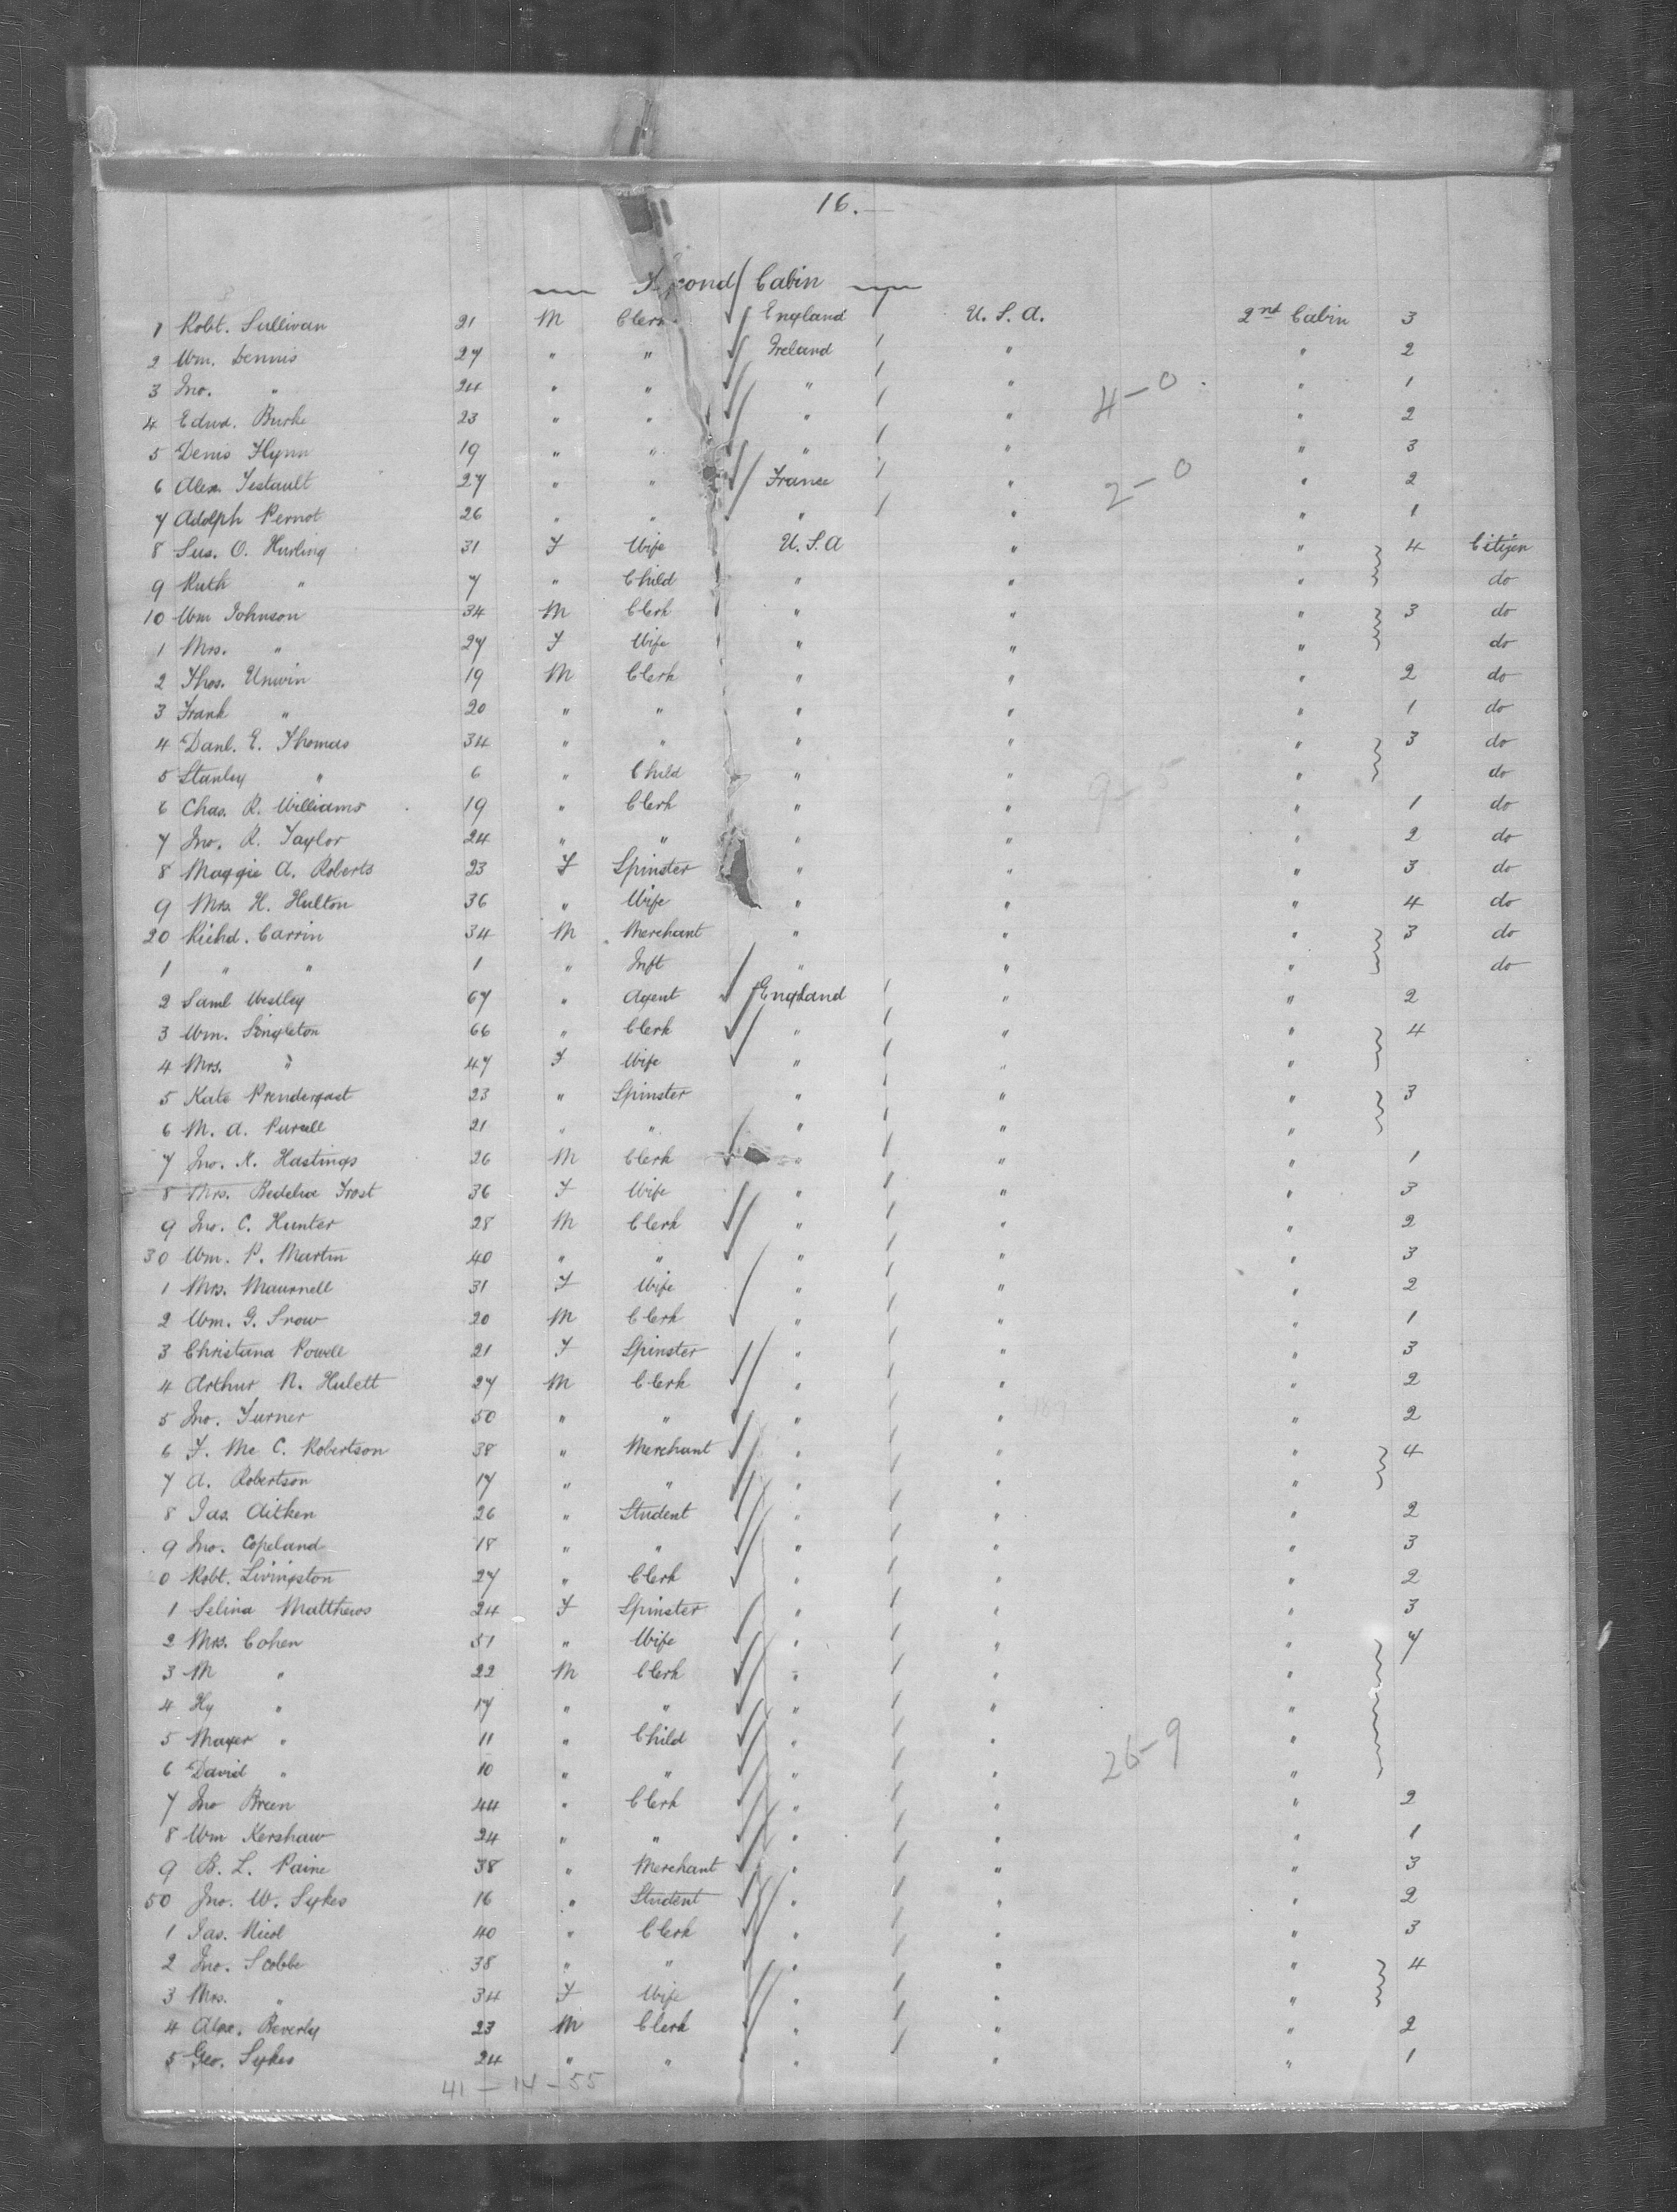 16.
Second Cabin
1 Robt. Sullivan 21 M Clerk England U.S.A. 2nd Cabin 3
2 Wm. Dennis 27 " " Ireland " " 2
3 Jno. " 24 " " " " " 1
4 Edwd. Burke 23 " " " " " 2
5 Denis Flynn 19 " " " " " 3
6 Alex. Testault 27 " " France " " 2
7 Adolph Pernot 26 " " " " " 1
8 Sus. O. Hurling 31 F Wife U.S.A " " 4 Citizen
9 Ruth " 7 " Child " " " do
10 Wm Johnson 34 M Clerk " " " 3 do
1 Mrs. " 27 F Wife " " " do
2 Thos. Unwin 19 M Clerk " " " 2 do
3 Frank " 20 " " " " " 1 do
4 Danl. E. Thomas 34 " " " " " 3 do
5 Stanley " 6 " Child " " " do
6 Chas. R. Williams 19 " Clerk " " " 1 do
7 Jno. R. Taylor 24 " " " " " 2 do
8 Maggie A. Roberts 23 F Spinster " " " 3 do
9 Mrs. H. Hulton 36 " Wife " " " 4 do
20 Richd. Carrin 34 M Merchant " " " 3 do
1 " " 1 " Inft " " " do
2 Saml Westley 67 " Agent England " " 2
3 Wm. Singleton 66 " Clerk " " " 4
4 Mrs. " 47 F Wife " " "
5 Kate Prendergast 23 " Spinster " " " 3
6 M. A. Purcell 21 " " " " "
7 Jno. K. Hastings 26 M Clerk " " " 1
8 Mrs. Bedelia Frost 36 F Wife " " " 3
9 Jno. C. Hunter 28 M Clerk " " " 2
30 Wm. P. Martin 40 " " " " " 3
1 Mrs. Maurnell 31 F Wife " " " 2
2 Wm. G. Snow 20 M Clerk " " " 1
3 Christana Powell 21 F Spinster " " " 3
4 Arthur N. Hulett 27 M Clerk " " " 2
5 Jno. Turner 50 " " " " " 2
6 F. Mc C. Robertson 38 " Merchant " " " 4
7 A. Robertson 17 " " " " "
8 Jas. Aitken 26 " Student " " " 2
9 Jno. Copeland 18 " " " " " 3
0 Robt. Livingston 27 " Clerk " " " 2
1 Selina Matthews 24 F Spinster " " " 3
2 Mrs. Cohen 51 " Wife " " " 7
3 M " 22 M Clerk " " "
4 Hy " 17 " " " " "
5 Mayer " 11 " Child " " "
6 David " 10 " " " " "
7 Jno Breen 44 " Clerk " " " 2
8 Wm Kershaw 24 " " " " " 1
9 B. L. Paine 38 " Merchant " " " 3
50 Jno. W. Sykes 16 " Student " " " 2
1 Jas. Nicol 40 " Clerk " " " 3
2 Jno. Scobbe 38 " " " " " 4
3 Mrs. " 34 F Wife " " "
4 Alex. Beverly 23 M Clerk " " " 2
5 Geo. Sykes 24 " " " " " 1
4-0
2-0
9-5
26-9
41-14-55